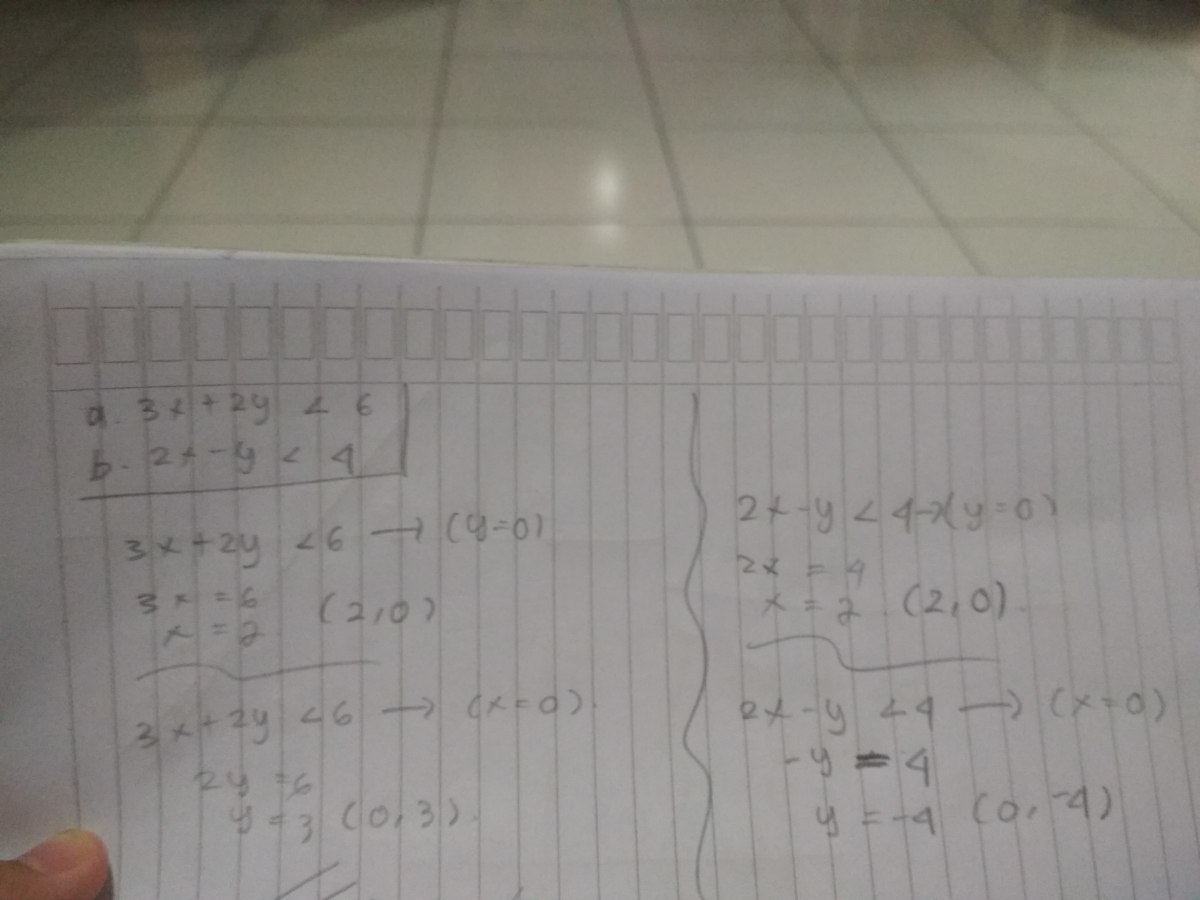 a. 3x+2y < 6
b. 2x-y < 4
3x+2y <6 → (y=0)
3x =6 (2,0)
x =2
3x+2y <6 → (x=0)
2y =6
y=3 (0,3).
2x-y <4→(y=0)
2x = 4
x =2 (2,0).
2x-y <4 → (x=0)
-y = 4
y =-4 (0,-4)